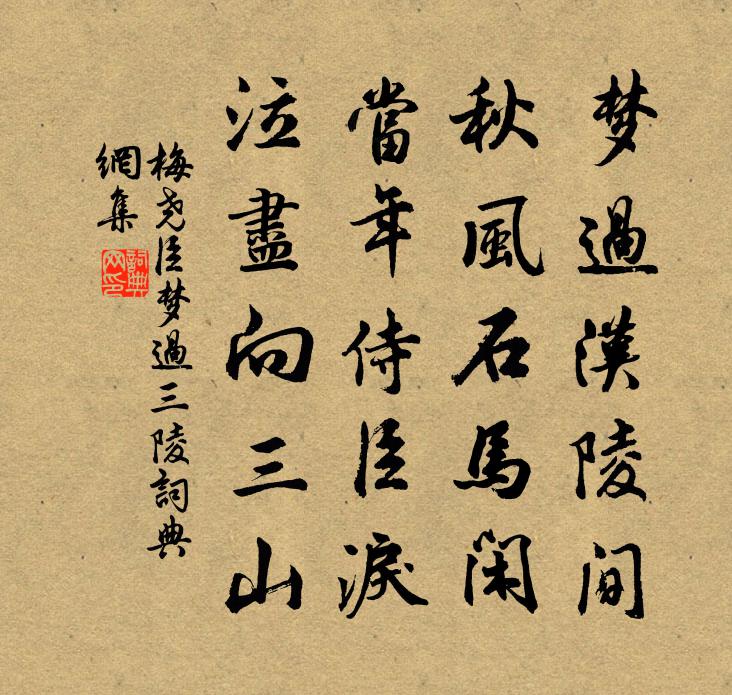 梦過漢陵间
秋風石馬閑
當年侍臣淚
泣盡向三山
梅尧臣梦過三陵詞典
網集
詞典
网印